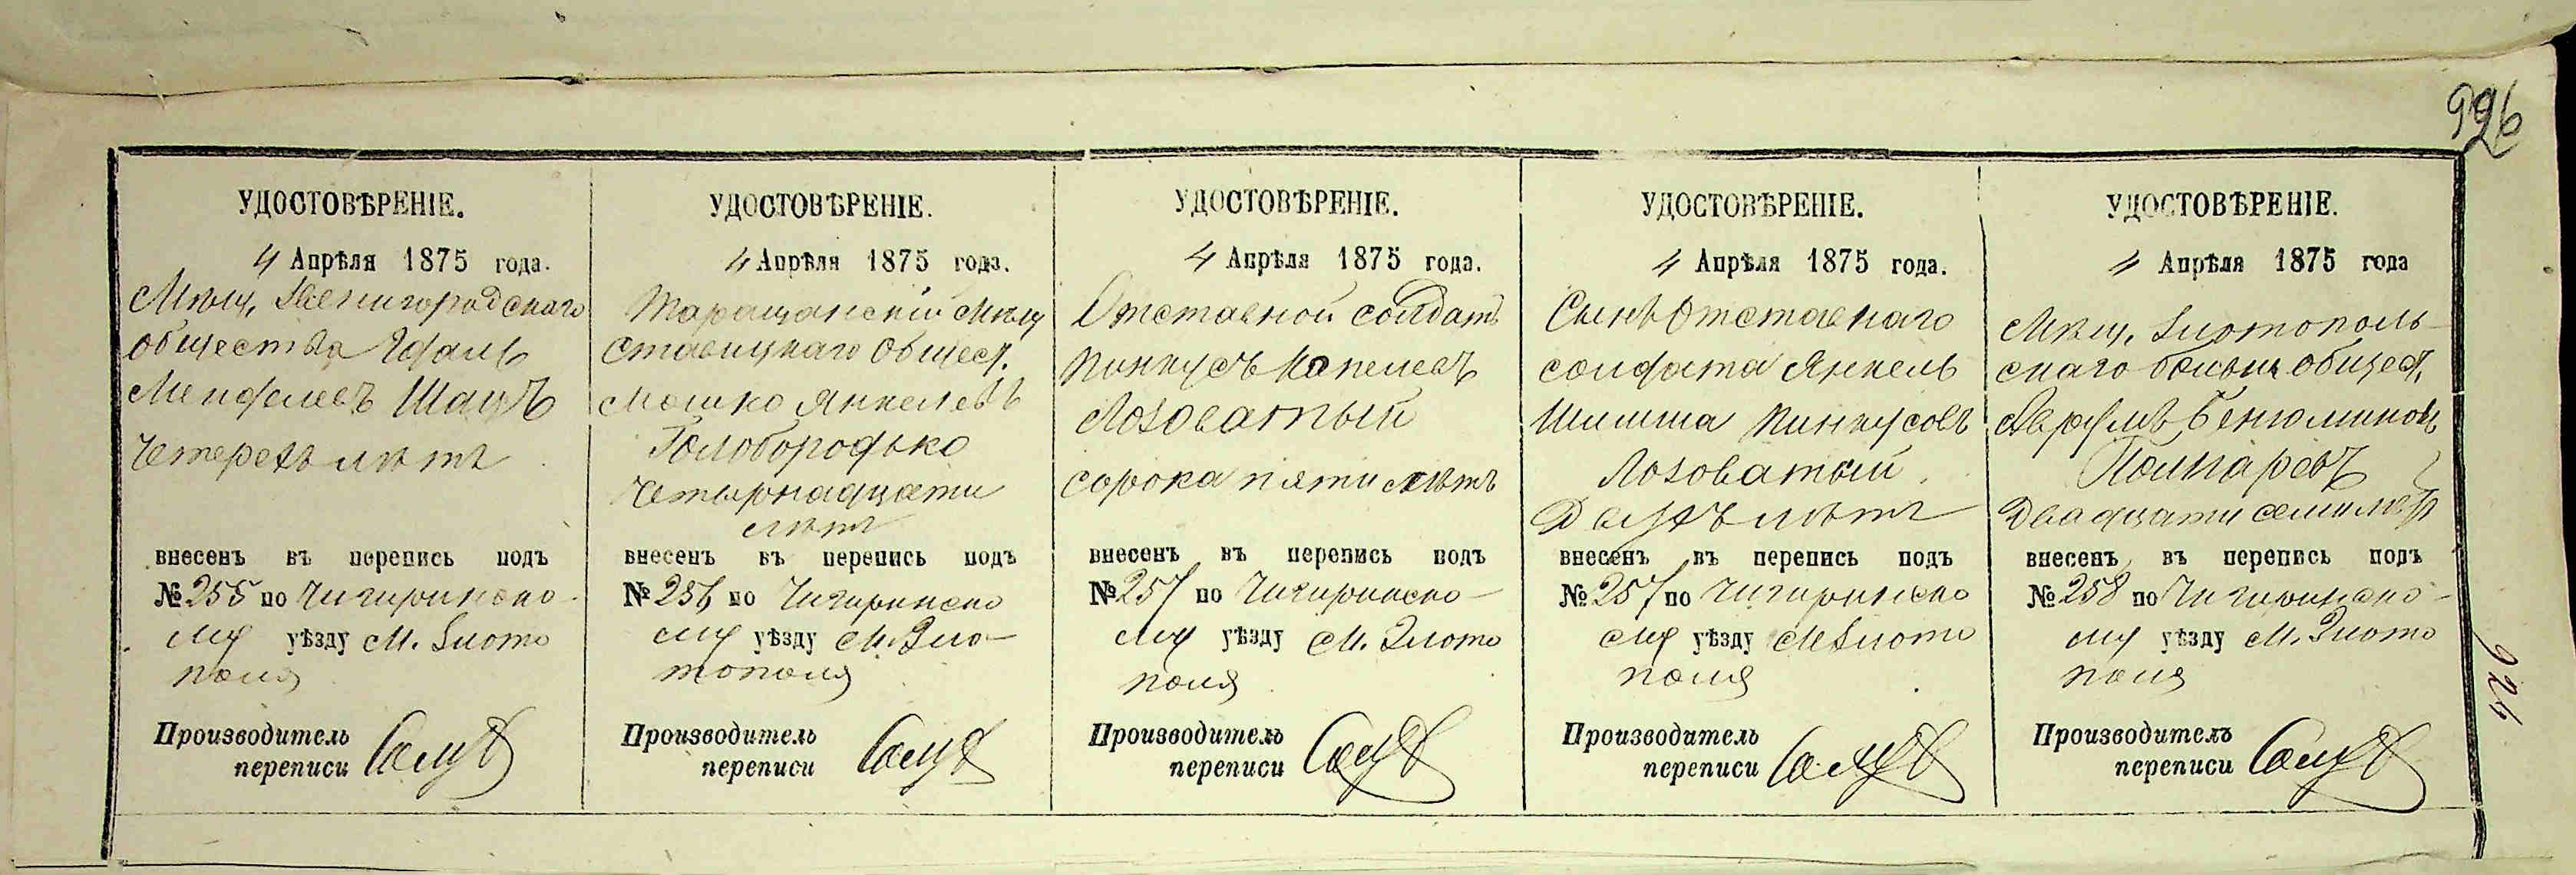 996
УДОСТОВѢРЕНІЕ.
4 Апрѣля 1875 года.
Мѣщ. Звенигородскаго
общества
Менделевъ Шацъ
четерехъ лѣтъ
внесенъ въ перепись подъ
№ 255 по Чигиринско-
му уѣзду М. Злото
поля
Производитель
переписи
УДОСТОВѢРЕНІЕ.
4 Апрѣля 1875 года.
Таращанскій мѣщ
Ставищкаго Общест.
Мошко Янкелевъ
Голобородько
четырнадцати
лѣтъ
внесенъ въ перепись подъ
№ 256 по Чигиринско
му уѣзду М. Зло-
тополя
Производитель
переписи
УДОСТОВѢРЕНІЕ.
4 Апрѣля 1875 года.
Отставной солдатъ
Пинкусъ Копелевъ
Лозоватый
сорока пяти лѣтъ
внесенъ въ перепись подъ
№ 257 по Чигиринско-
му уѣзду М. Злото
поля
Производитель
переписи
УДОСТОВѢРЕНІЕ.
4 Апрѣля 1875 года.
Сынъ Отставнаго
солдата Янкель
Шлиома Пинкусовъ
Лозоватый
Двухъ лѣтъ
внесенъ въ перепись подъ
№ 257 по Чигиринско
му уѣзду М Злото
поля
Производитель
переписи
УДОСТОВѢРЕНІЕ.
4 Апрѣля 1875 года
Мѣщ. Златополь-
скаго общест.
Аврумъ Бенюминовъ
Понтаревъ
Двадцати семи лѣтъ
внесенъ въ перепись подъ
№ 258 по Чигиринско-
му уѣзду М. Злото
поля
Производитель
переписи
926